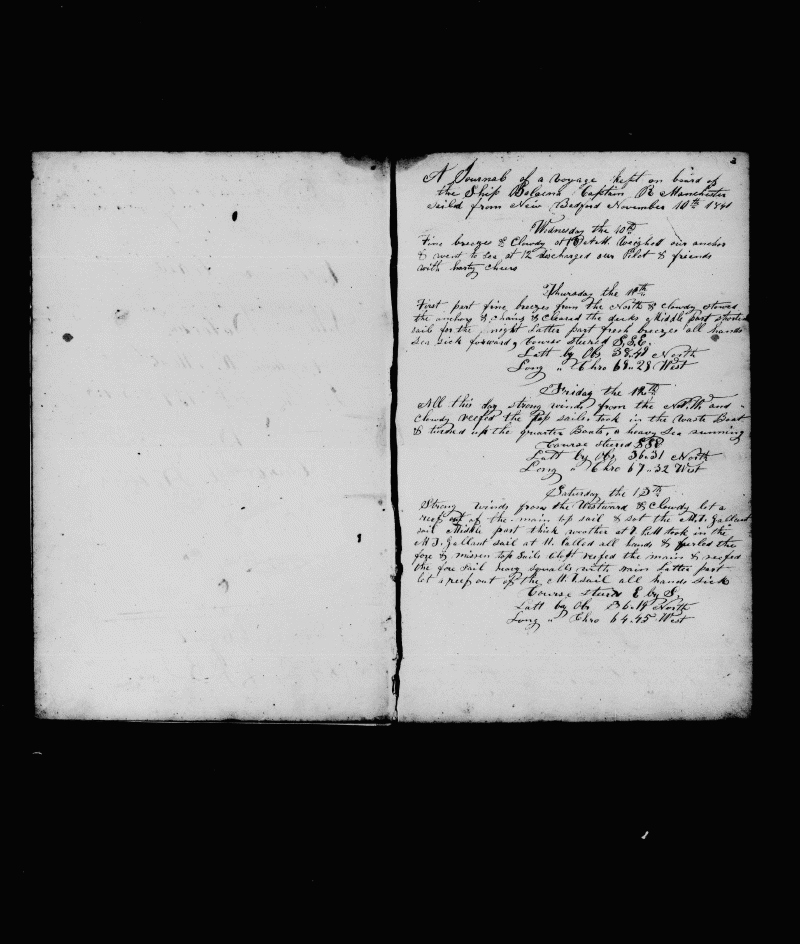 2
A Journal of a voyage kept on board of
the Ship Balaena Captain R Manchester
Saild from New Bedford November 10th 1841
Wednesday the 10th
Fine breezes & Cloudy at 10 A.M. Weighed our anchor
& went to sea at 12 discharged our Pilot & friends
with harty cheers
Thursday the 11th
First part fine breezes from the North & cloudy stowed
the anchors & chains & cleared the decks Middle part shortend
sails for the night Latter part fresh breezes all hands
Sea sick forward Course steered S.S.E.
Latt by Obs 38.40 North
Long " Chro 68.28 West
Friday the 12th
All this day strong winds from the North and
Cloudy reefed the top sails took in the waste Boat
& turned up the quarter Boats, a heavy Sea running
Course steered SSE
Latt by Obs 36.31 North
Long " Chro 67.32 West
Saturday the 13th
Strong winds from the Westward & Cloudy let a
reef out of the main top sail & set the M.T. Gallant
sail Middle part thick weather at 7 P.M took in the
M T. Gallant sail at 11. Called all hands & furled the
fore & missen top sails Clost reefed the main & reefed
the fore sail heavy squalls with rain Latter part
let a reef out of the M. T. sail all hands sick
Course steerd E by S.
Latt by Obs 36.19 North
Long " Chro 64.45 West